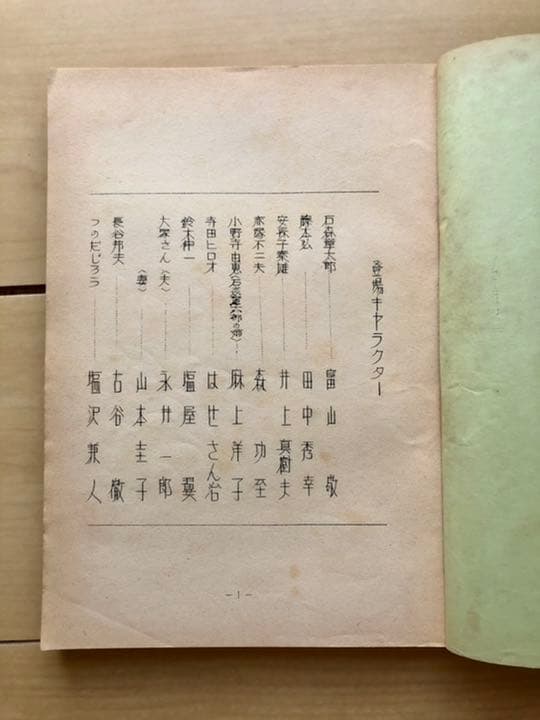 登場キャラクター
石森章太郎………富山 敬
藤本弘………田中秀幸
安孫子素雄………井上真樹夫
赤塚不二夫………森 功至
小野寺由恵(石森章太郎の姉)……麻上洋子
寺田ヒロオ………はせさん治
鈴木伸一………塩屋 翼
大塚さん(夫)………永井一郎
(妻)………山本圭子
長谷邦夫………古谷 徹
つのだじろう………塩沢兼人
－1－